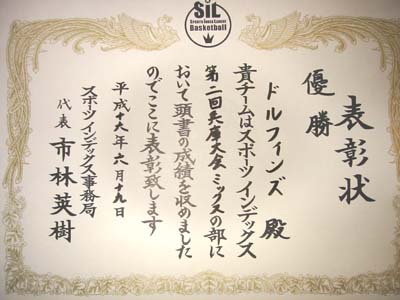 SIL
Sports Index League
Basketball
表彰状
優勝
ドルフィンズ 殿
貴チームはスポーツインデックス
第二回兵庫大会ミックスの部に
おいて頭書の成績を収めました
のでここに表彰致します
平成十六年六月十九日
スポーツインデックス事務局
代表 市林英樹